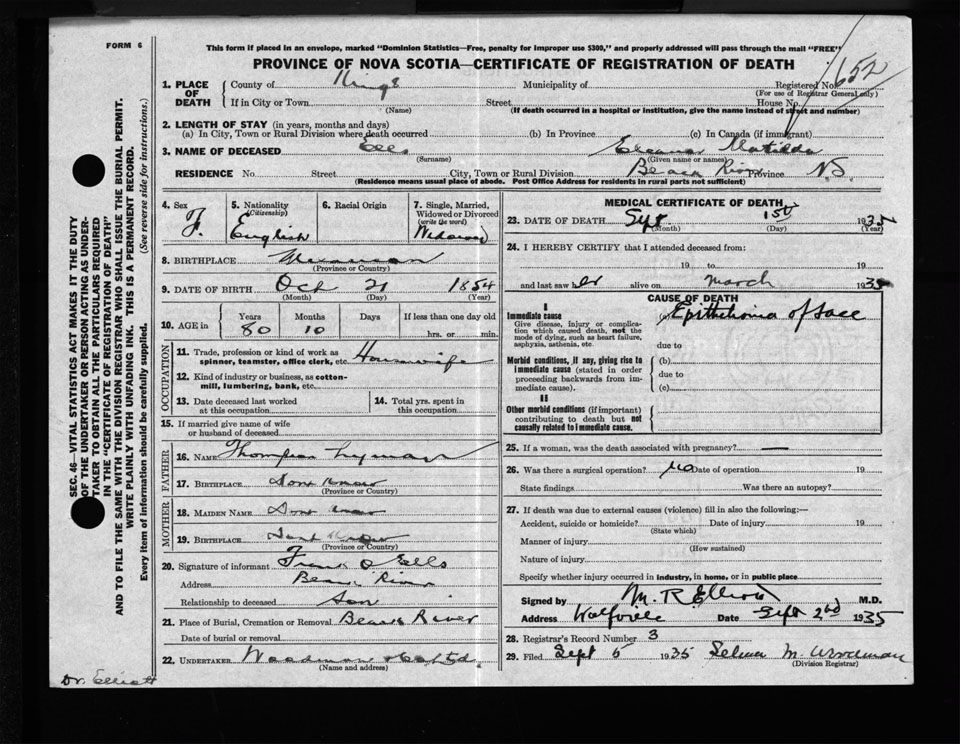 FORM 6
This form if placed in an envelope, marked "Dominion Statistics—Free, penalty for improper use $300," and properly addressed will pass through the mail "FREE"
PROVINCE OF NOVA SCOTIA—CERTIFICATE OF REGISTRATION OF DEATH
652
1. PLACE OF DEATH
County of Kings Municipality of Registered No.
(For use of Registrar General only)
If in City or Town Street House No.
(Name) (If death occurred in a hospital or institution, give the name instead of street and number)
2. LENGTH OF STAY (in years, months and days)
(a) In City, Town or Rural Division where death occurred (b) In Province (c) In Canada (if immigrant)
3. NAME OF DECEASED Eells Eleanor Matilda
(Surname) (Given name or names)
RESIDENCE No. Street City, Town or Rural Division Province N.S
(Residence means usual place of abode. Post Office Address for residents in rural parts not sufficient)
4. Sex F.
5. Nationality (Citizenship) English
6. Racial Origin
7. Single, Married, Widowed or Divorced (write the word) Widowed
8. BIRTHPLACE
(Province or Country)
9. DATE OF BIRTH Oct 21 1854
(Month) (Day) (Year)
10. AGE in
Years Months Days If less than one day old
80 10 hrs. or min.
OCCUPATION
11. Trade, profession or kind of work as spinner, teamster, office clerk, etc. Housewife
12. Kind of industry or business, as cotton-mill, lumbering, bank, etc.
13. Date deceased last worked at this occupation
14. Total yrs. spent in this occupation
15. If married give name of wife or husband of deceased
FATHER
16. NAME Thompson Lyman
17. BIRTHPLACE Dont Know
(Province or Country)
MOTHER
18. MAIDEN NAME Dont Know
19. BIRTHPLACE Dont Know
(Province or Country)
20. Signature of informant Frank O Eells
Address River
Relationship to deceased Son
21. Place of Burial, Cremation or Removal River
Date of burial or removal
22. UNDERTAKER Woodman
(Name and address)
MEDICAL CERTIFICATE OF DEATH
23. DATE OF DEATH Sept 1st 1935
(Month) (Day) (Year)
24. I HEREBY CERTIFY that I attended deceased from:
19 to 19
and last saw her alive on March 1935
CAUSE OF DEATH
I
Immediate cause
Give disease, injury or complication which caused death, not the mode of dying, such as heart failure, asphyxia, asthenia, etc.
(a) Epithelioma of face
due to
Morbid conditions, if any, giving rise to immediate cause (stated in order proceeding backwards from immediate cause).
(b)
due to
(c)
II
Other morbid conditions (if important) contributing to death but not causally related to immediate cause.
25. If a woman, was the death associated with pregnancy? —
26. Was there a surgical operation? No Date of operation 19
State findings Was there an autopsy?
27. If death was due to external causes (violence) fill in also the following:—
Accident, suicide or homicide? Date of injury 19
(State which)
Manner of injury
(How sustained)
Nature of injury
Specify whether injury occurred in industry, in home, or in public place
Signed by M. R Elliott M.D.
Address Wolfville Date Sept 2nd 1935
28. Registrar's Record Number 3
29. Filed Sept 5 1935 Selena M. Woodman
(Division Registrar)
SEC. 46—VITAL STATISTICS ACT MAKES IT THE DUTY
OF THE UNDERTAKER OR PERSON ACTING AS UNDER-
TAKER TO OBTAIN ALL THE PARTICULARS REQUIRED
IN THE "CERTIFICATE OF REGISTRATION OF DEATH"
AND TO FILE THE SAME WITH THE DIVISION REGISTRAR WHO SHALL ISSUE THE BURIAL PERMIT.
WRITE PLAINLY WITH UNFADING INK. THIS IS A PERMANENT RECORD.
Every item of information should be carefully supplied. (See reverse side for instructions.)
Dr. Elliott